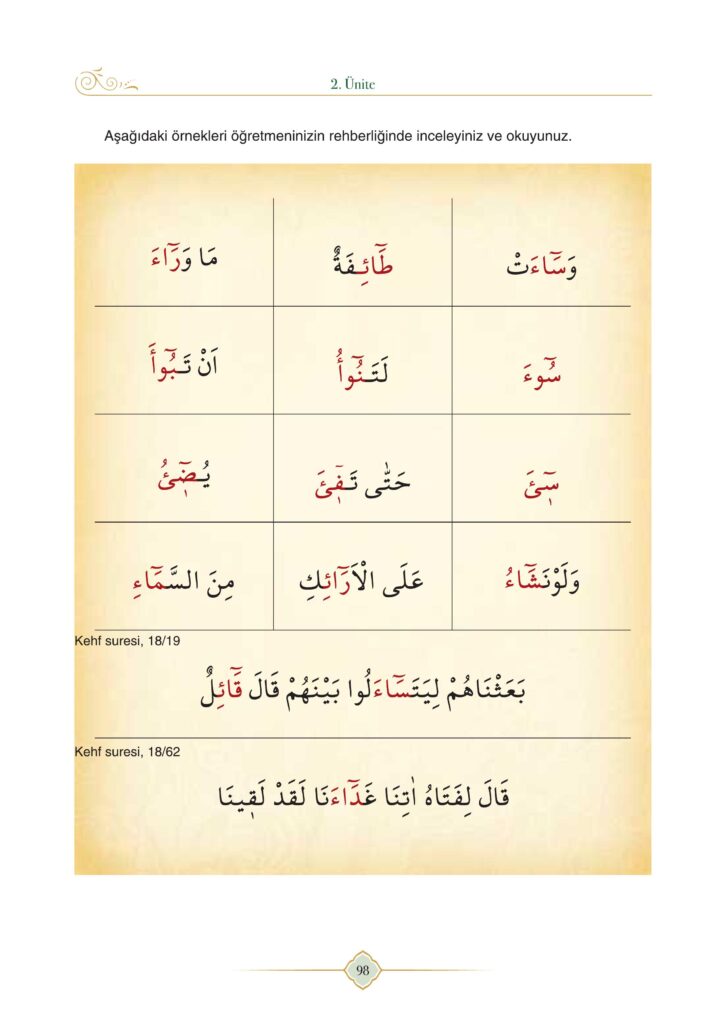 2. Ünite
Aşağıdaki örnekleri öğretmeninizin rehberliğinde inceleyiniz ve okuyunuz.
وَسَٓاءَتْ طَٓائِفَةٌ مَا وَرَٓاءَ
سُٓوءَ لَتَنُٓوأُ اَنْ تَبُٓوأَ
سٖٓئَ حَتّٰى تَفٖٓئَ يُضٖٓئُ
وَلَوْنَشَٓاءُ عَلَى الْاَرَٓائِكِ مِنَ السَّمَٓاءِ
Kehf suresi, 18/19
بَعَثْنَاهُمْ لِيَتَسَٓاءَلُوا بَيْنَهُمْ قَالَ قَٓائِلٌ
Kehf suresi, 18/62
قَالَ لِفَتَاهُ اٰتِنَا غَدَٓاءَنَا لَقَدْ لَقٖينَا
98